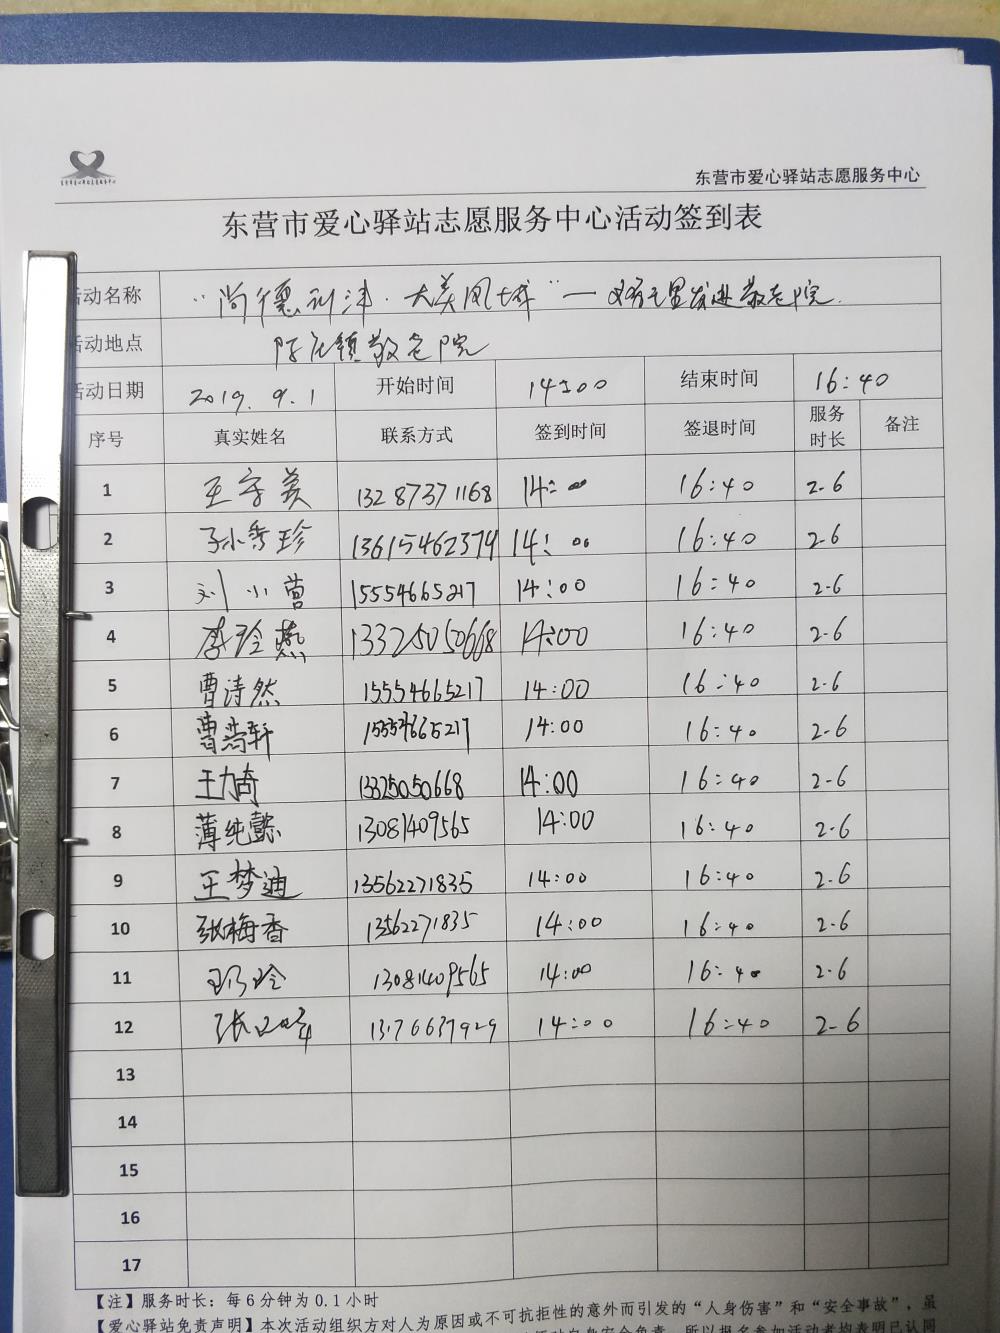 东营市爱心驿站志愿服务中心
东营市爱心驿站志愿服务中心
东营市爱心驿站志愿服务中心活动签到表
活动名称 “尚德利津·大美凤城”一 敬老院
活动地点 陈庄镇敬老院
活动日期 2019.9.1 开始时间 14:00 结束时间 16:40
序号 真实姓名 联系方式 签到时间 签退时间 服务时长 备注
1 王守美 13287371168 14:00 16:40 2.6
2 孙秀珍 13615462374 14:00 16:40 2.6
3 刘小营 15554665217 14:00 16:40 2.6
4 李玲燕 13325050668 14:00 16:40 2.6
5 曹诗然 15554665217 14:00 16:40 2.6
6 曹 轩 15554665217 14:00 16:40 2.6
7 王力奇 13325050668 14:00 16:40 2.6
8 薄纯懿 13081409565 14:00 16:40 2.6
9 王梦迪 13562271835 14:00 16:40 2.6
10 张梅香 13562271835 14:00 16:40 2.6
11 玲 13081409565 14:00 16:40 2.6
12 张 13176637929 14:00 16:40 2.6
13
14
15
16
17
【注】服务时长：每6分钟为0.1小时
【爱心驿站免责声明】本次活动组织方对人为原因或不可抗拒性的意外而引发的“人身伤害”和“安全事故”，虽
所以报名参加活动者均表明已认同